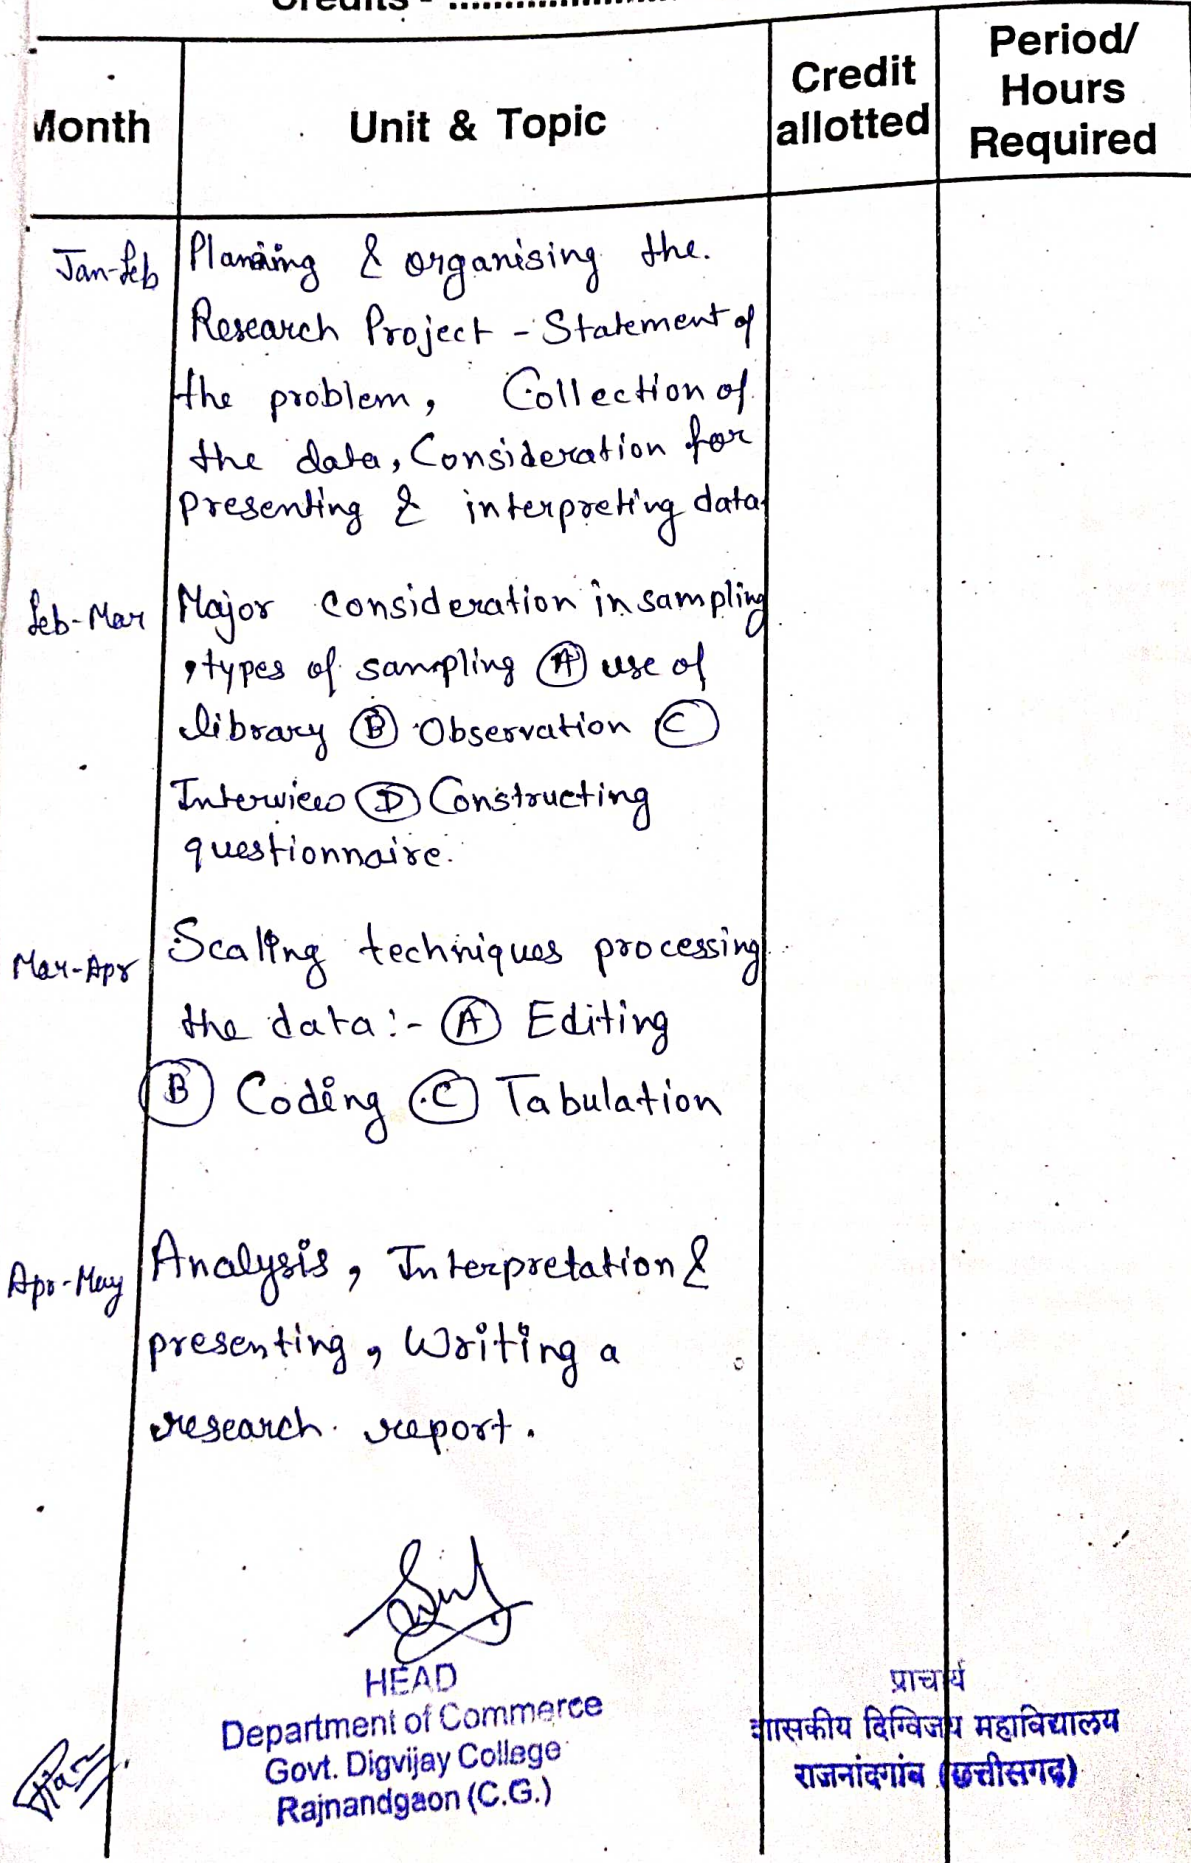 Credits - ........................
Month
Unit & Topic
Credit
allotted
Period/
Hours
Required
Jan-Feb
Planning & organising the
Research Project - Statement of
the problem, Collection of
the data, Consideration for
presenting & interpreting data.
Feb-Mar
Major consideration in sampling
, types of sampling Ⓐ use of
library Ⓑ Observation Ⓒ
Interview Ⓓ Constructing
questionnaire.
Mar-Apr
Scaling techniques processing
the data:- Ⓐ Editing
Ⓑ Coding Ⓒ Tabulation
Apr-May
Analysis, Interpretation &
presenting, Writing a
research report.
HEAD
Department of Commerce
Govt. Digvijay College
Rajnandgaon (C.G.)
प्राचार्य
शासकीय दिग्विजय महाविद्यालय
राजनांदगांव (छत्तीसगढ़)